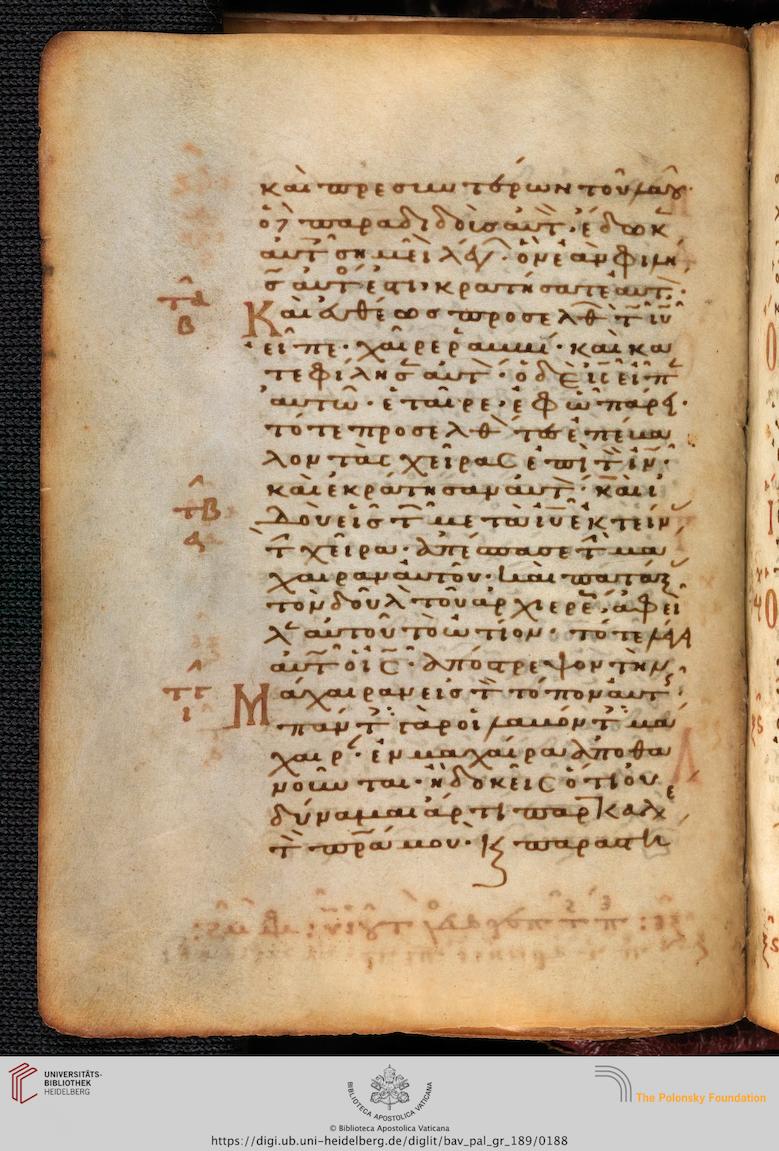 καὶ πρεσβυτέρων τοῦ λαοῦ·
ὁ δὲ παραδιδοὺς αὐτ · ἔδωκ
αὐτ σημεῖ λέγ · ὃν ἐὰν φιλή
σ αὐτός ἐστι· κρατήσατε αὐτ ·
τα
β
Καὶ εὐθέως προσελθ τ ιυ
εἶπε · χαῖρε ῥαββί · καὶ κα
τεφίλησ αὐτ · ὁ δὲ ις εἶπ
αὐτῶ · ἑταῖρε · ἐφ ὧ πάρει ·
τότε προσελθ ἐπέβα
λον τὰς χεῖρας ἐπὶ τ ιν ·
καὶ ἐκράτησαν αὐτ · καὶ ἰ
τβ
δ
δοὺ εἷς τ μετὰ ιυ ἐκτείν
τ χεῖρα · ἀπέσπασε τ μά
χαιραν αὐτοῦ · καὶ πατάξ
τὸν δοῦλ τοῦ ἀρχιερέ · ἀφεῖ
λ αὐτοῦ τὸ ὠτίον · τότε λέγει
αὐτ ὁ ις · ἀπόστρεψον τὴν
τγ
ι
Μάχαιραν εἰς τ τόπον αὐτ ·
πάντ γὰρ οἱ λαβόντ μά
χαιρ · ἐν μαχαίρα ἀποθα
νοῦνται · ἢ δοκεῖς ὅτι οὐ
δύναμαι ἄρτι παρακαλέ
τ πρα μου · κ παραστή
UNIVERSITÄTS-
BIBLIOTHEK
HEIDELBERG
BIBLIOTECA APOSTOLICA VATICANA
The Polonsky Foundation
© Biblioteca Apostolica Vaticana
https://digi.ub.uni-heidelberg.de/diglit/bav_pal_gr_189/0188